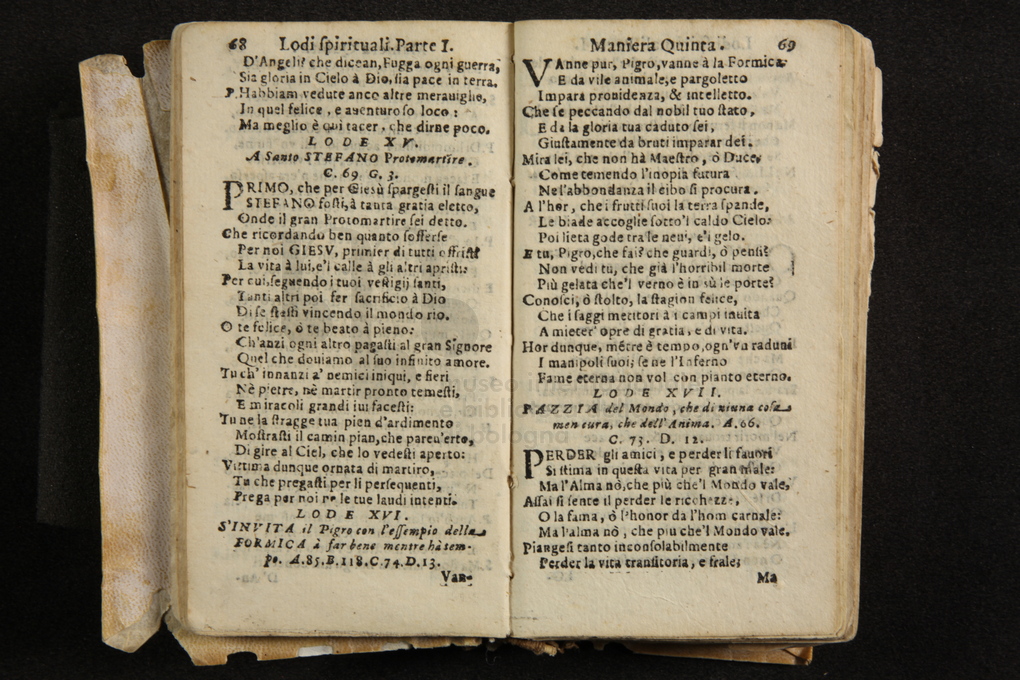 68 Lodi ſpirituali. Parte I.
D'Angeli? che dicean, Fugga ogni guerra,
Sia gloria in Cielo à Dio, ſia pace in terra.
P. Habbiam vedute anco altre merauiglie,
In quel felice, e auenturoſo loco:
Ma meglio è qui tacer, che dirne poco.
LODE XV.
A Santo STEFANO Protomartire.
C. 69. G. 3.
PRIMO, che per Gieſù ſpargeſti il ſangue
STEFANO foſti, à tanta gratia eletto,
Onde il gran Protomartire ſei detto.
Che ricordando ben quanto ſofferſe
Per noi GIESV, primier di tutti offriſti
La vita à lui, e'l calle à gli altri apriſti:
Per cui, ſeguendo i tuoi veſtigij ſanti,
Tanti altri poi fer ſacrificio à Dio
Di ſe ſteſſi vincendo il mondo rio.
O te felice, ò te beato à pieno:
Ch'anzi ogni altro pagaſti al gran Signore
Quel che douiamo al ſuo infinito amore.
Tu ch' innanzi a' nemici iniqui, e fieri
Nè pietre, nè martir pronto temeſti,
E miracoli grandi iui faceſti:
Tu ne la ſtragge tua pien d'ardimento
Moſtraſti il camin pian, che pareu'erto,
Di gire al Ciel, che lo vedeſti aperto:
Vittima dunque ornata di martiro,
Tu che pregaſti per li perſequenti,
Prega por noi ne le tue laudi intenti.
LODE XVI.
S'INVITA il Pigro con l'eſſempio della
FORMICA à far bene mentre hà tem-
po. A.85. B.118. C.74. D.13.
Van-
Maniera Quinta. 69
VAnne pur, Pigro, vanne à la Formica
E da vile animale, e pargoletto
Impara prouidenza, & intelletto.
Che ſe peccando dal nobil tuo ſtato,
E da la gloria tua caduto ſei,
Giuſtamente da bruti imparar dei.
Mira lei, che non hà Maeſtro, ò Duce,
Come temendo l'inopia futura
Ne l'abbondanza il cibo ſi procura.
A l'hor, che i frutti ſuoi la terra ſpande,
Le biade accoglie ſotto'l caldo Cielo:
Poi lieta gode tra le neui, e'l gelo.
E tu, Pigro, che fai? che guardi, ò penſi?
Non vedi tu, che già l'horribil morte
Più gelata che'l verno è in sù le porte?
Conoſci, ò ſtolto, la ſtagion felice,
Che i ſaggi metitori à i campi inuita
A mieter' opre di gratia, e di vita.
Hor dunque, mẽtre è tempo, ogn'vn raduni
I manipoli ſuoi; ſe ne l'Inferno
Fame eterna non vol con pianto eterno.
LODE XVII.
PAZZIA del Mondo, che di niuna coſa
men cura, che dell'Anima. A.66.
C. 73. D. 12.
PERDER gli amici, e perder li fauori
Si ſtima in queſta vita per gran male:
Ma l'Alma nò, che più che'l Mondo vale,
Aſſai ſi ſente il perder le ricchezze,
O la fama, ò l'honor da l'hom carnale:
Ma l'alma nò, che più che'l Mondo vale.
Piangeſi tanto inconſolabilmente
Perder la vita tranſitoria, e frale;
Ma